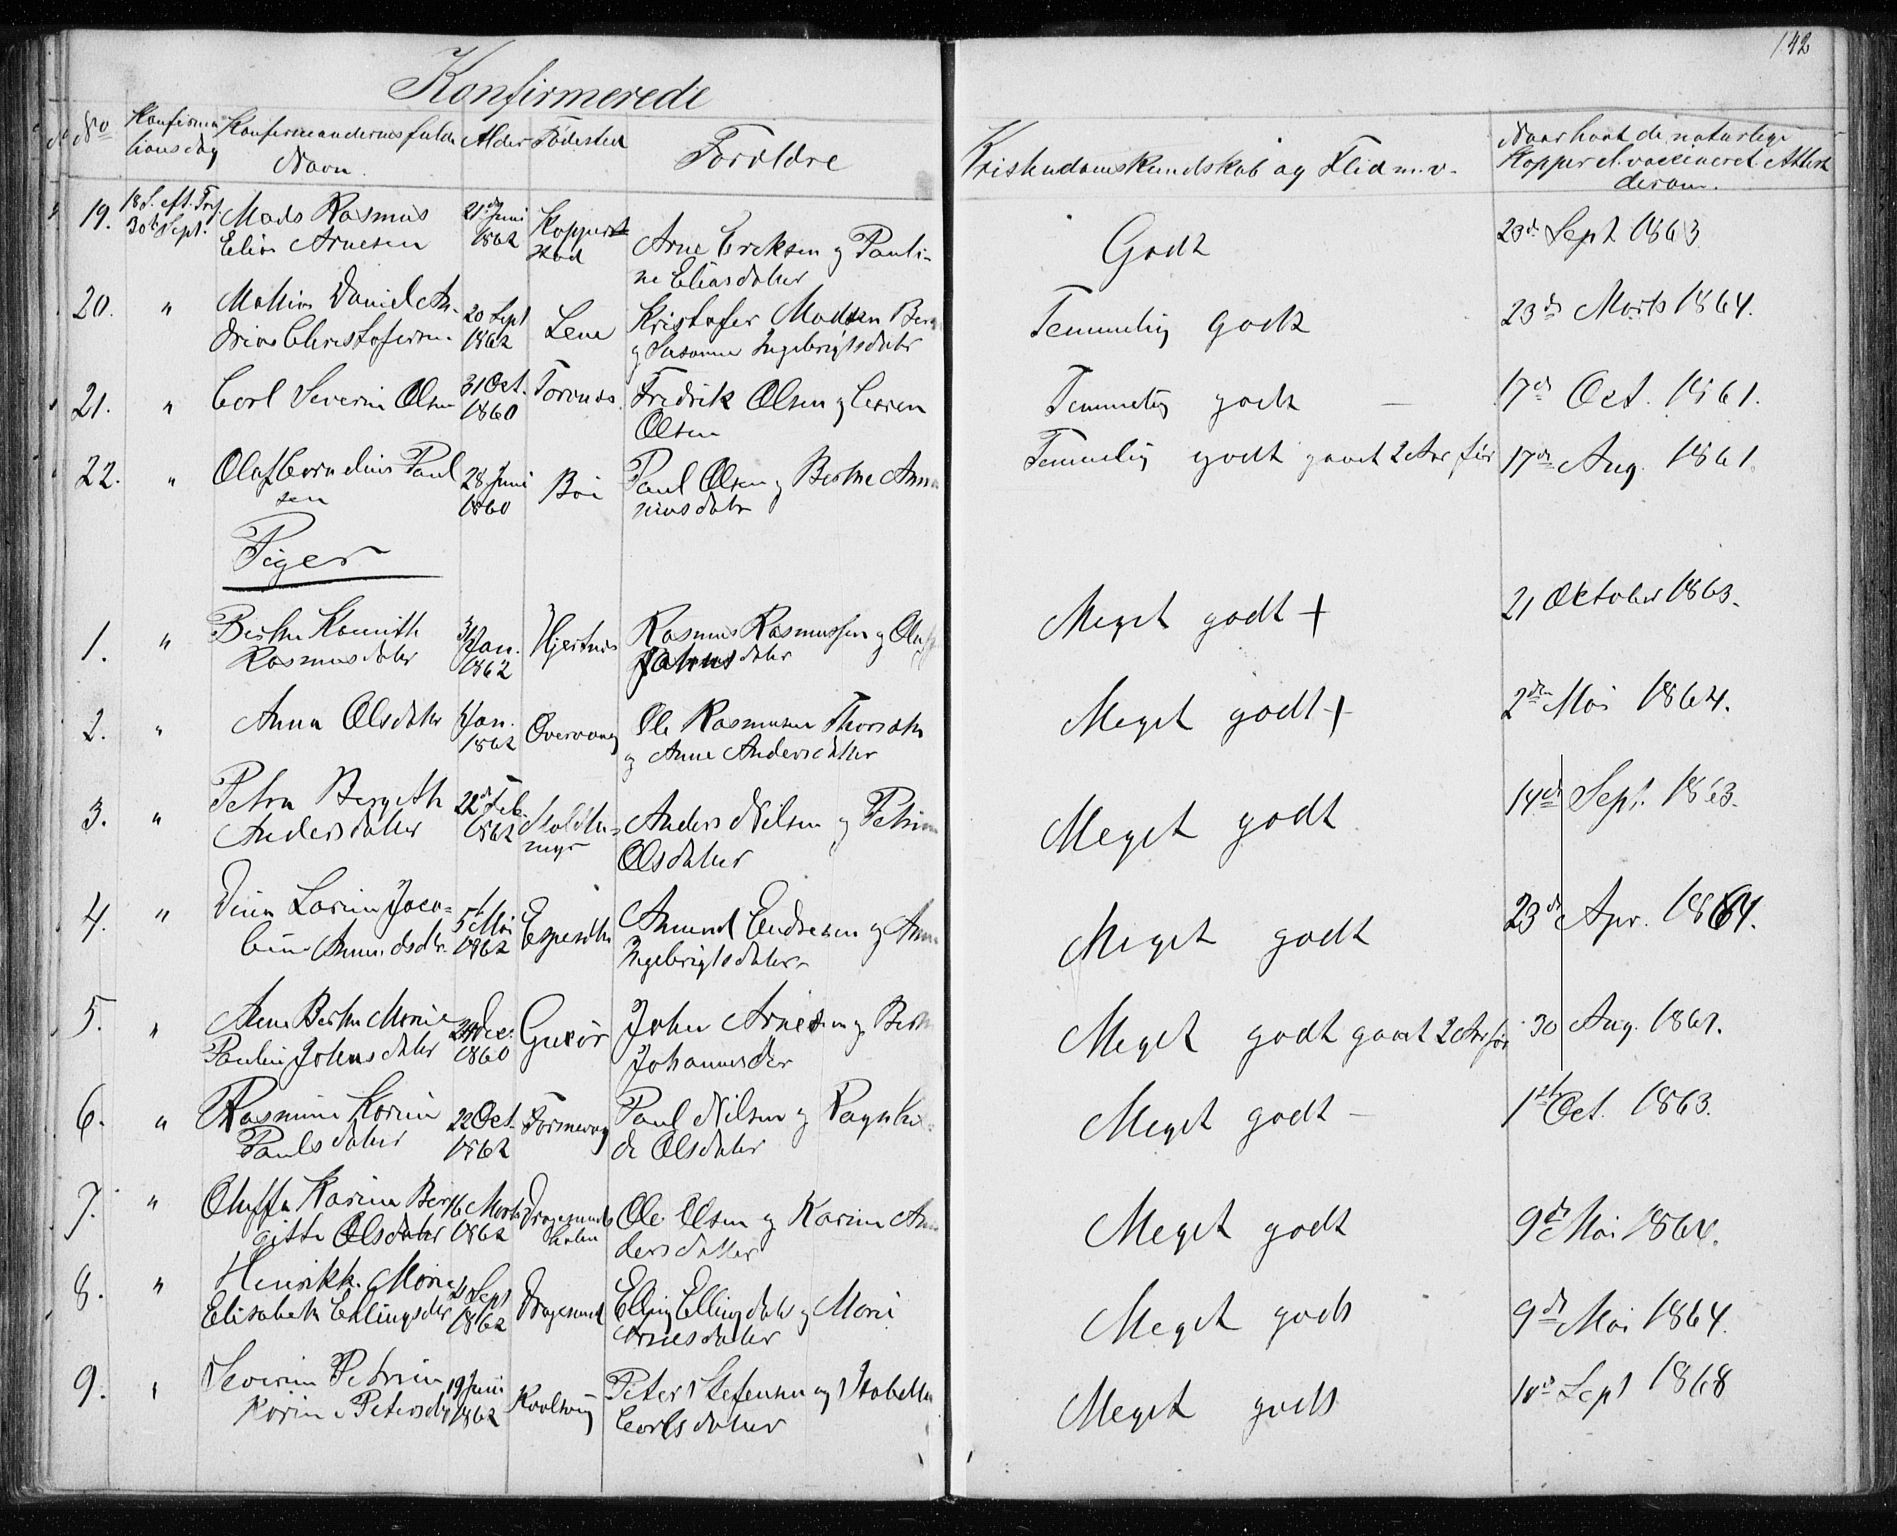 142
Konfirmerede
No
Konfirma
tionsdag
Konfirmandernes fulde
Navn.
Alder
Fødested
Forældre
Kristendomskundskab og Flid m. v.
Naar havt de naturlige
Kopper el. vaccineret Attest
derom.
19. 18. S. eft. Tref.
30te Sept. Mads Rasmus
Elias Arnesen 21de Juni
1862 Kopper
stad Arne Eriksen og Pauli-
ne Eliasdatter Godt 23de Sept 1863
20. " Mathias Daniel An-
drias Christofersen. 20 Sept
1862 Lene Kristofer Madsen Berg
og Susanne Ingebrigtsdatr Temmelig godt 23de Marts 1864.
21. " Carl Severin Olsen 31 Oct.
1860 Torvnes Fredrik Olsen og
Olsen Temmelig godt — 17de Oct. 1861.
22. " Olaf Cornelius Paul
sen 28 Juni
1860 Bøe Paul Olsen og Berthe
datr Temmelig godt gaaet 2 Aar før 17de Aug. 1861.
Piger
1. " Berthe
Rasmusdatter 31 Jan.
1862 Hjertnes Rasmus Rasmussen og
Johns datter Meget godt + 21 Oktober 1863.
2. " Anna Olsdatter Jan.
1862 Overvaag Ole Rasmussen
og Anne Andersdatter Meget godt + 2den Mai 1864.
3. " Petra Bergeth
Andersdatter 22de Feb.
1862
myr Anders Nilsen og Petrine
Olsdatter Meget godt 14de Sept. 1863.
4. " Dina Larine Jaco-
bine Amundsdr. 5te Mai
1862 Espesæter Amund Endresen og Anne
Ingebrigtsdatter Meget godt 23de Apr. 1864.
5. " Anne Berthe Marie
Pauline Johnsdatter 24 Dec.
1860 Gurør John Arnesen og Berthe
Johannesdtr Meget godt gaaet 2 Aar før 30 Aug. 1861.
6. " Rasmine Karine
Pauls datter 22 Oct.
1862 Formevog Paul Nilsen og Ragnhil-
de Olsdatter Meget godt — 1ste Oct. 1863.
7. " Oluffa Karine Ber
gitte Olsdatter 16 Marts
1862 Dragesunds
holm Ole Olsen og Karine An
dersdatter Meget godt 9de Mai 1864.
8. " Henrikke Marie
Elisabeth Ellingsdtr Sept
1862 Dragesund Elling Ellingdatr og Marie
Arnesdatter Meget godt 9de Mai 1864.
9. " Severine Petrine
Karine Petersdtr 19 Juni
1862 Kvalsvig Peter Stefensen og Isabella
Carlsdatter Meget godt Sept 1868